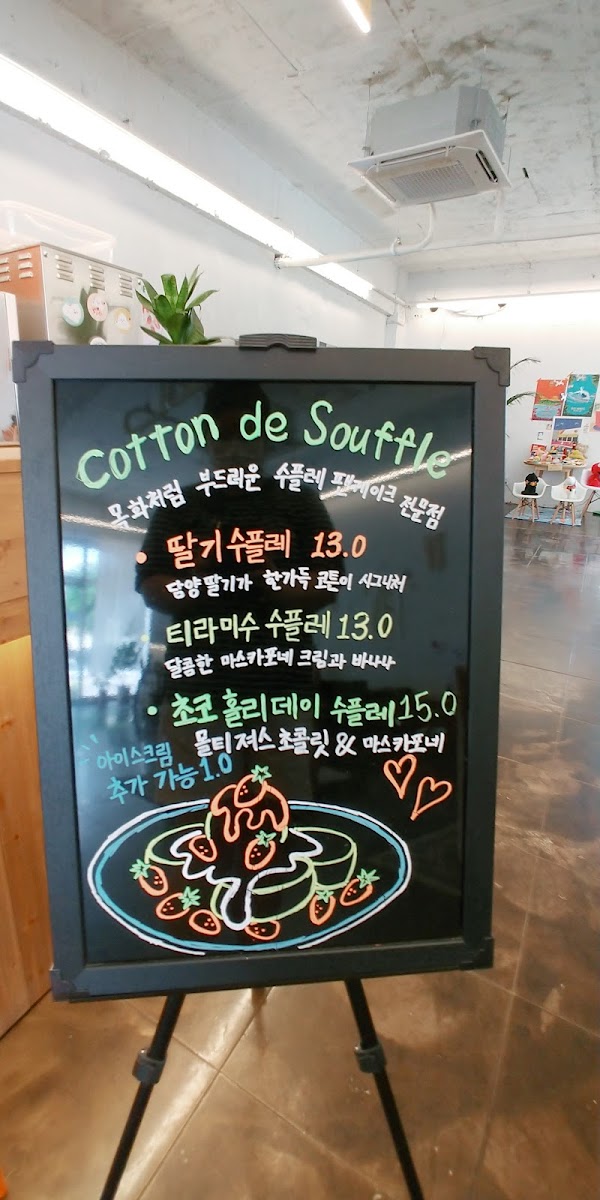 Cotton de Souffle
목화처럼 부드러운 수플레 팬케이크 전문점
• 딸기수플레 13.0
담양딸기가 한가득 코튼이 시그니처
티라미수 수플레 13.0
달콤한 마스카포네 크림과 바나나
• 초코 홀리데이 수플레 15.0
몰티져스초콜릿 & 마스카포네
아이스크림
추가 가능 1.0